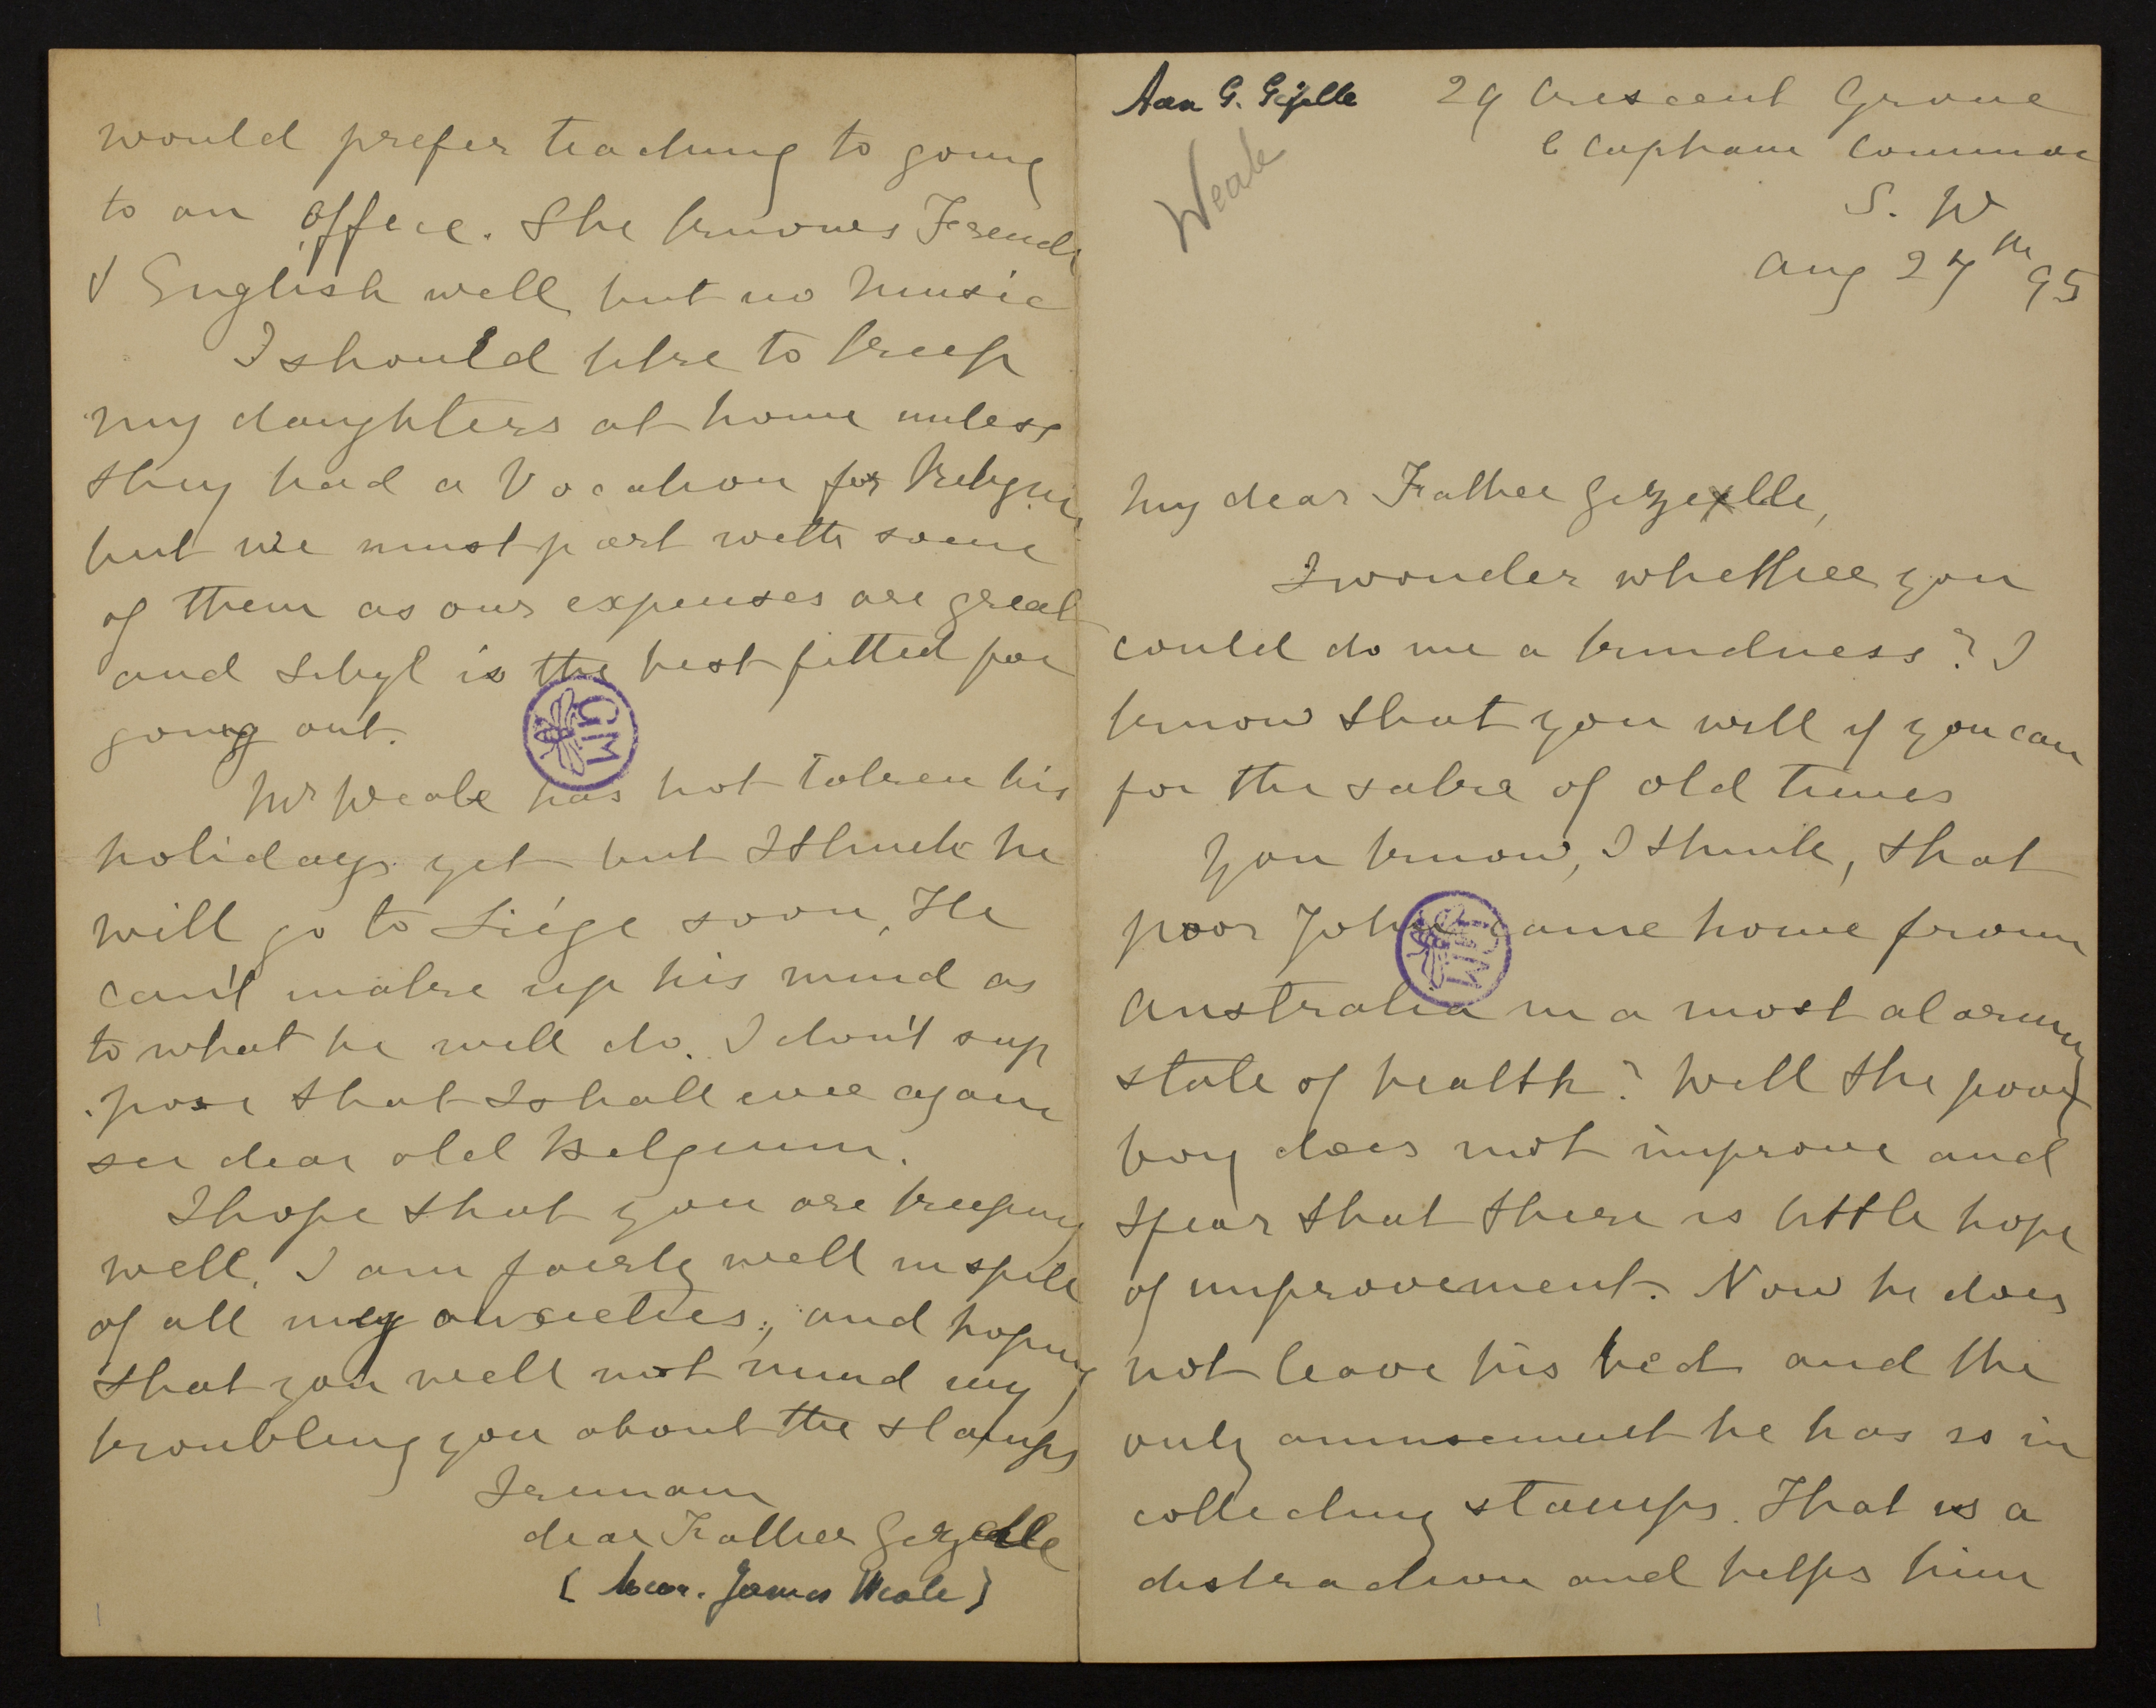 Aan G. Gezelle
29 Crescent Grove
Clapham Common
S. W
Aug 27th 95
Weale
My dear Father Gezelle,
I wonder whether you
could do me a kindness? I
know that you will if you can
for the sake of old times
You know, I think, that
poor John came home from
Australia in a most alarming
state of health? Well the poor
boy does not improve and
I fear that there is little hope
of improvement. Now he does
not leave his bed and the
only amusement he has is in
collecting stamps. That is a
distraction and helps him
would prefer teaching to going
to an office. She knows French
& English well but no music
I should like to keep
my daughters at home unless
they had a Vocation for Religion
but we must part with some
of them as our expenses are great
and Sibyl is the best fitted for
going out.
GM
Mr Weale has not taken his
holidays yet but I think he
will go to Liége soon, He
can't make up his mind as
to what he will do. I don't sup
pose that I shall ever again
see dear old Belgium.
I hope that you are keeping
well. I am fairly well in spite
of all my anxieties, and hoping
that you will not mind my
troubling you about the stamps
I remain
dear Father Gezelle
( James Weale)
GM
1